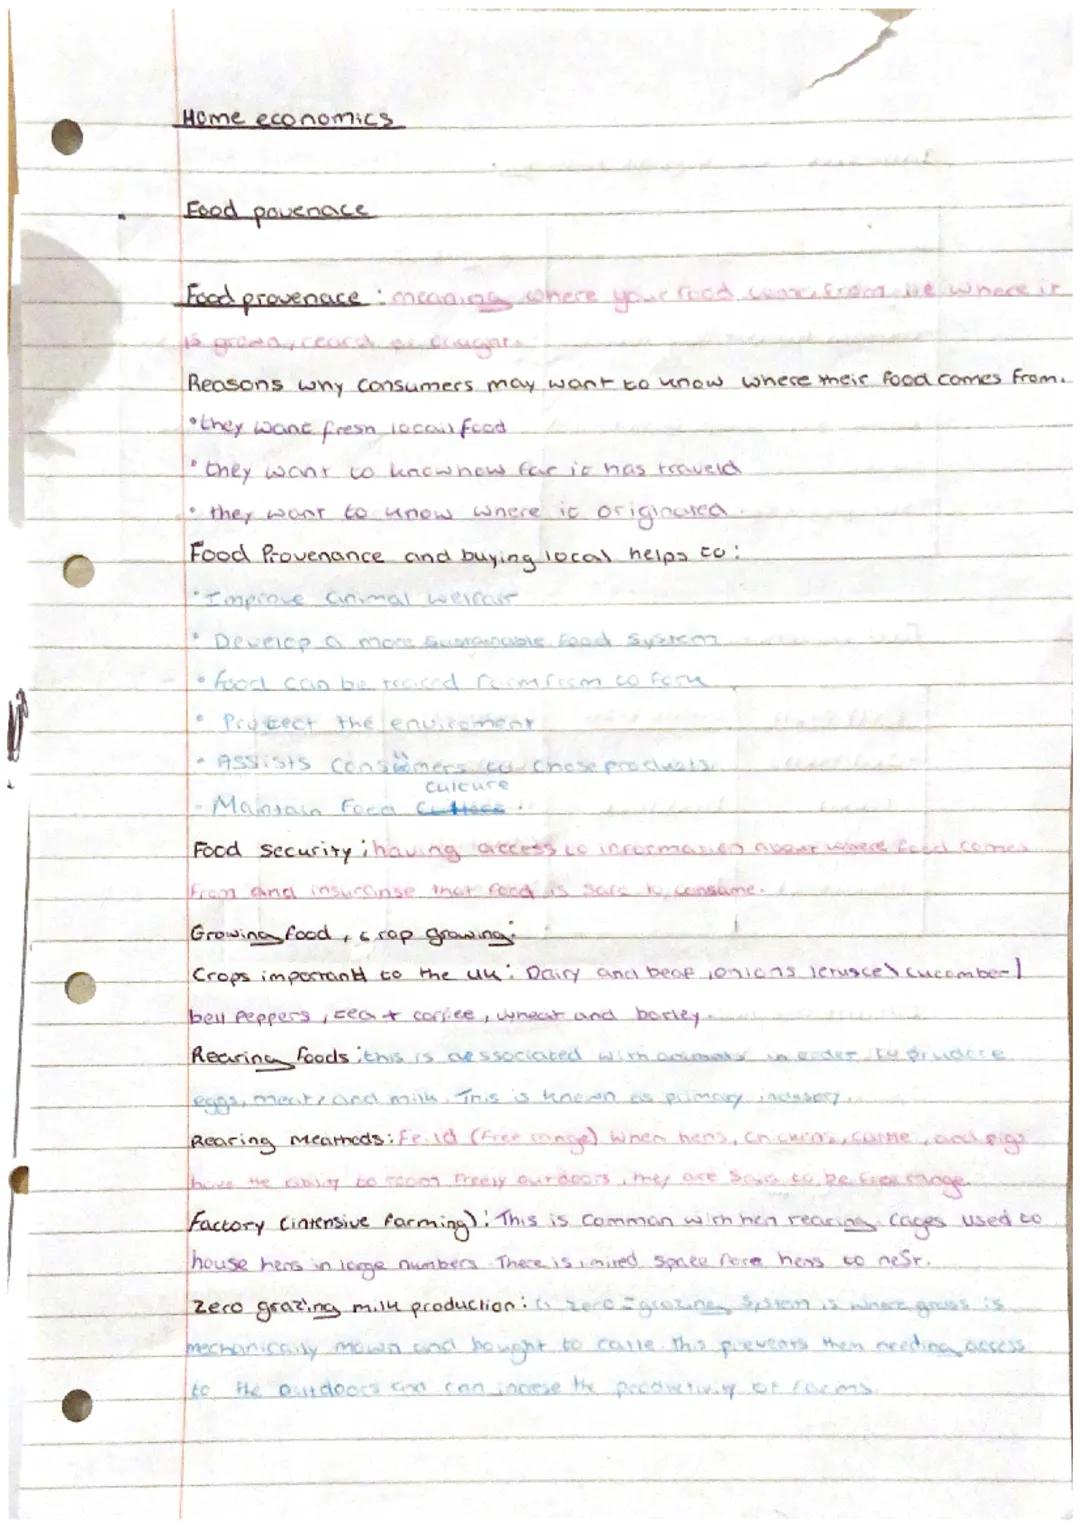 Home economics
Food povenace
Food provenace : meaning where your food comes from ie where it
is grown, reard or caught.
Reasons why consumers may want to know where their food comes from.
• they want fresh locail food
• they want to know how far it has traveld
• they want to know where it originated.
Food Provenance and buying local helps to:
• Improve animal welfair
• Develop a more sustainable food system
• food can be traced farm from to fork
• Protect the enviroment
• Assists consumers to chose products.
culture
- Maintain food
Food security; having access to information about where food comes
from and insurinse that food is safe to consume.
Growing food, crop growing:
Crops important to the uk: Dairy and beaf, onions letusce\ cucomber|
bell peppers, tea + coffee, wheat and barley.
Rearing foods: this is aessociated with animals in order to prudcce
eggs, meat, and milk. This is known as primary industry.
Rearing mearhods: Feild (free range) when hens, chickens, cattle, and pigs
have the ability to roam freely ourdoors, they are said to be free range.
factory (intensive farming): This is common with hen rearing. Cages used to
house hens in large numbers. There is limited space fore hens to nest.
Zero grazing milk production: a zero-grazing system is where grass is
mechanically mown and bought to catle. This prevents them needing access
to the outdoors and can increse the productivity of farms.